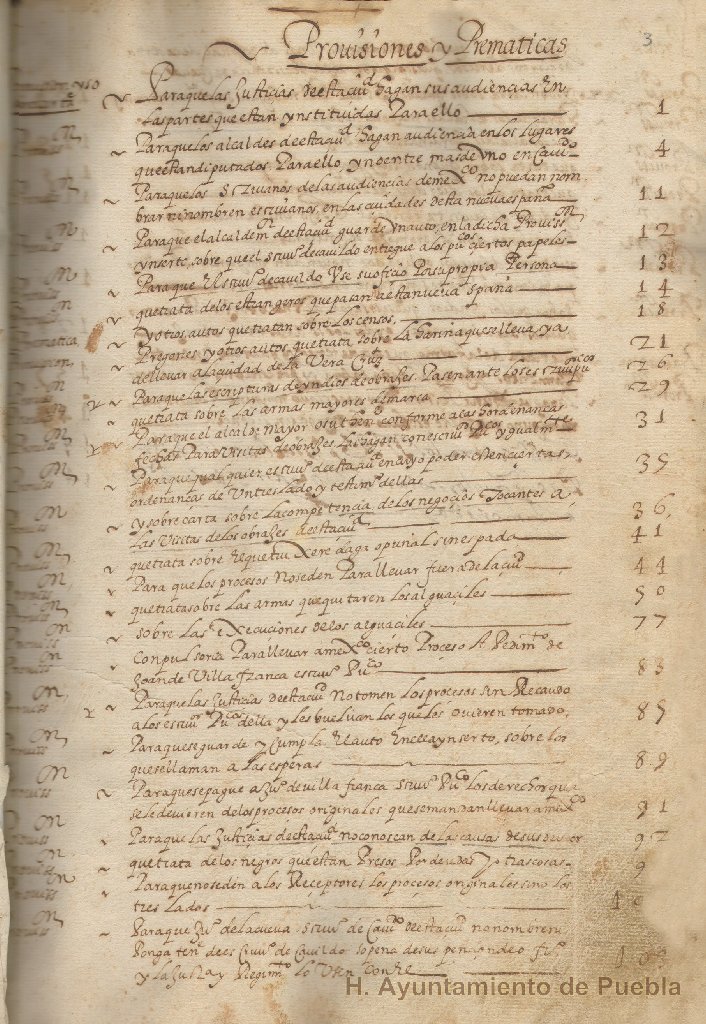 Provisiones y Prematicas 3
Para que las Justicias desta ciud hagan sus audiencias En
las partes que estan ynstituidas Para ello 1
Para que los alcaldes desta ciud hagan audiencia en los lugares
que estan diputados Para ello, y no entre mas de uno en Cavdo 4
Para que los Escrivanos de las audiencias de mexco no puedan nom
brar ni nombren escrivanos, en las ciudades desta nueva españa 11
Para que el alcalde mr desta ciud guarde un auto, en la dicha Provisson
ynserto, sobre que el Scrivo de cavildo entregue a los pucos ciertos papeles 12
Para que El scrivo de cavildo Use su oficio Por su propia Persona 13
que trata de los estrangeros que pasan a esta nueva españa 14
y otros autos que tratan sobre los censos 18
Pregones y otros autos que trata sobre La harina que se lleva, y a
de llevar a la ciudad de la Vera Cruz 21
Para que las escripturas de yndios de obrajes Pasen ante los escrivos pucos 26
que trata sobre las armas mayores de marca 29
Para que el alcalde mayor o su thente conforme a las hordenancas
fechas Para Visitas de obrajes las hagan con escrivo Puco y gualmte 31
Para que qual quier escrivo desta ciud en cuyo poder estén ciertas
ordenancas de Un treslado y testimo dellas 35
y sobre carta sobre la competencia de los negocios Tocantes a
Las Visitas de los obrajes desta ciud 36
que trata sobre que truxere daga o puñal sin espada 41
Para que los procesos No se den Para llevar fuera de la ciud 44
que trata sobre Las armas que quitaren los alguaciles 50
Sobre Las Execuciones de los alguaciles 77
Conpulsoria Para llevar a mexco cierto Proceso A Pedimto de
Joan de Villafranca escrivo Puco 83
Para que las Justicias desta ciud No tomen los procesos sin Recaudo
a los escrivos Pucos della y les buelvan los que los ovieren tomado 85
Para que se guarde y Cumpla El auto En ella ynserto, sobre los
que se llaman a las esperas 89
Para que se pague a Juo de villa franca scrivo Puco los derechos que
se le devieren de los procesos originales que se mandan llevar a mexco 91
Para que las Justicias desta ciud no conoscan de las causas de sus
que trata de los negros que estan Presos Por deudas y otras cosas 9
Para que no se den a los Receptores los procesos originales sino los
tres lados 1
Para que Juo de la cueva scrivo de Cavdo desta ciud no nombre ni
Ponga tente de escrivo de Cavildo so pena de
y la Justa y Regimto lo 103
H. Ayuntamiento de Puebla